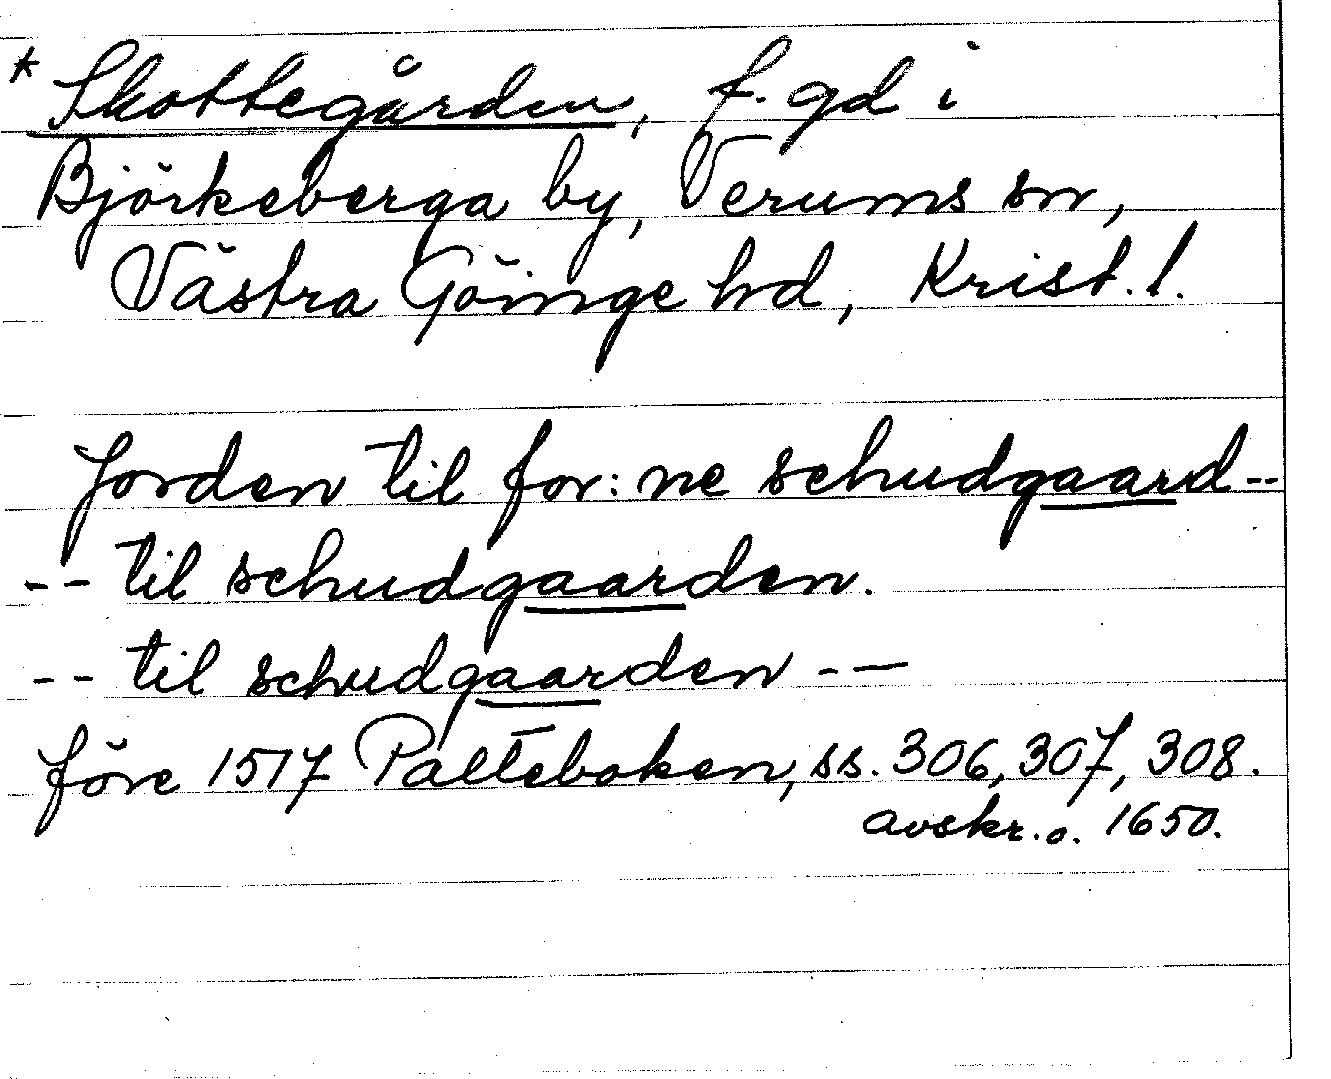 * Skottegården, f. gd i
Björkeberga by, Verums sn,
Västra Göinge hd, Krist. l.
Jorden til for: ne schudgaard--
-- til schudgaarden.
-- til schudgaarden --
före 1517 Palteboken, ss. 306, 307, 308.
avskr. o. 1650.